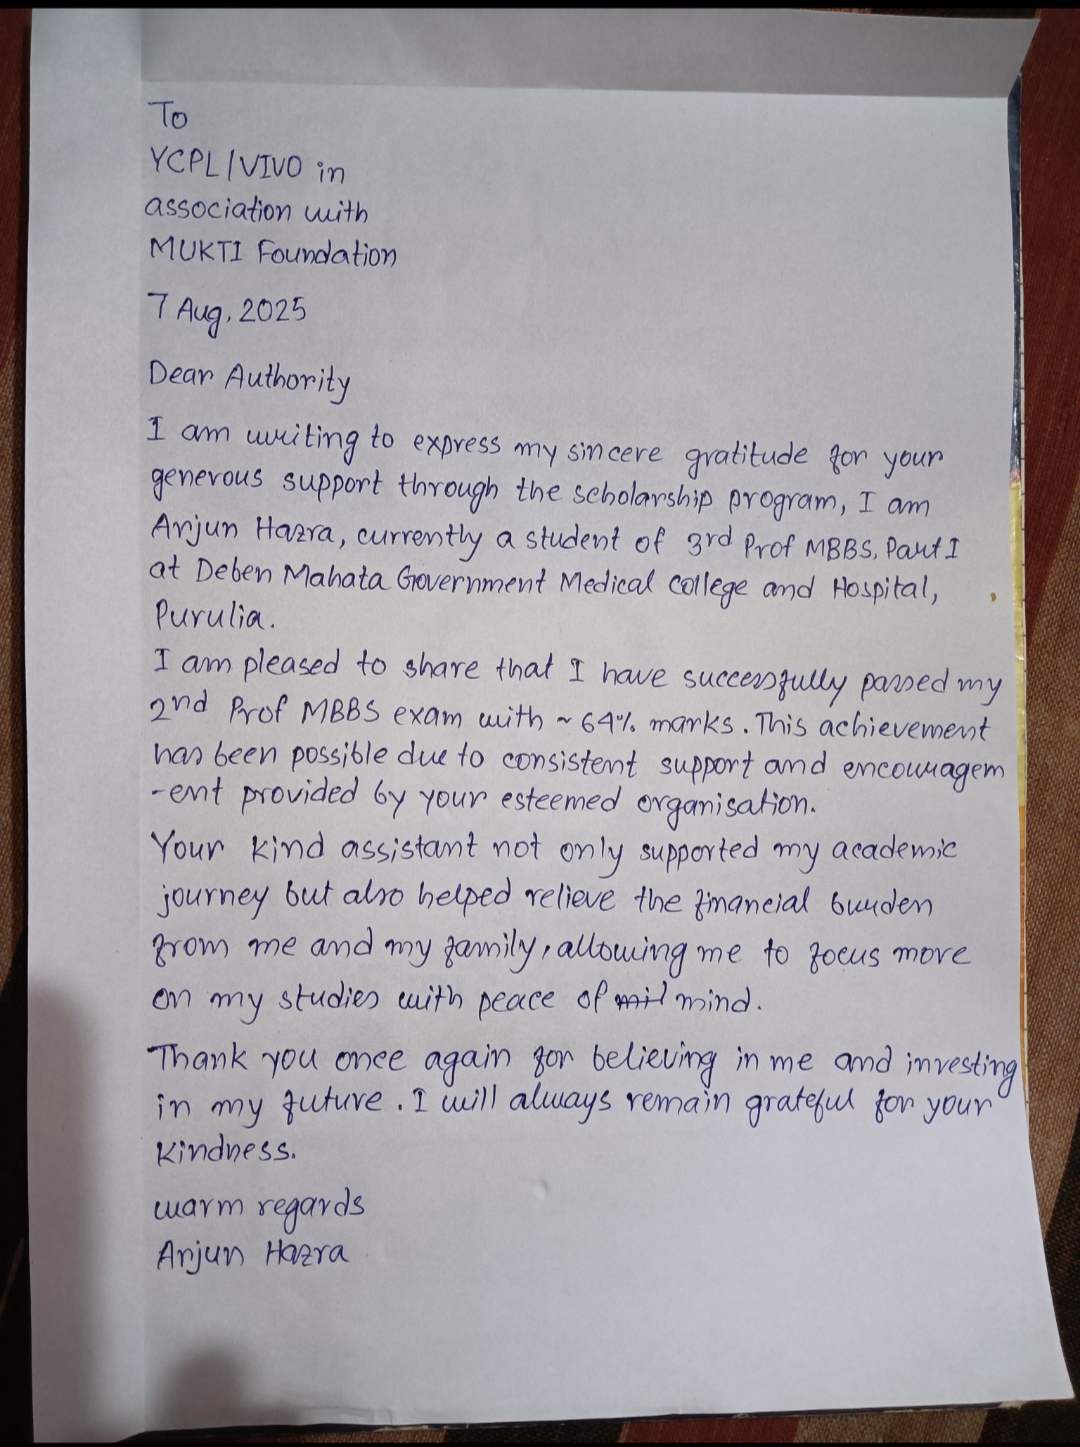 To
YCPL/VIVO in
association with
MUKTI Foundation
7 Aug, 2025
Dear Authority
I am writing to express my sincere gratitude for your
generous support through the scholarship program, I am
Arjun Hazra, currently a student of 3rd Prof MBBS, Part I
at Deben Mahata Government Medical College and Hospital,
Purulia.
I am pleased to share that I have successfully passed my
2nd Prof MBBS exam with ~ 64% marks. This achievement
has been possible due to consistent support and encouragem
-ent provided by your esteemed organisation.
Your kind assistant not only supported my academic
journey but also helped relieve the financial burden
from me and my family, allowing me to focus more
on my studies with peace of mind.
Thank you once again for believing in me and investing
in my future. I will always remain grateful for your
kindness.
warm regards
Arjun Hazra